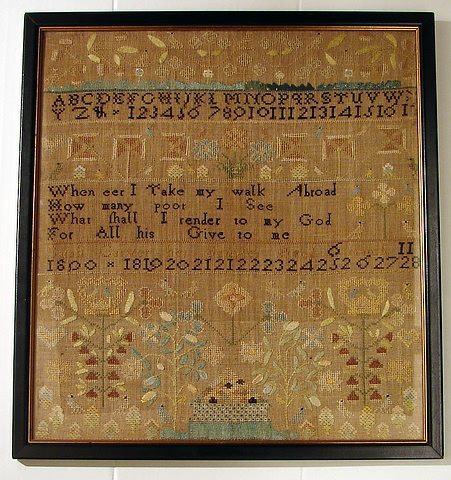 ABCDEFGHIJKLMNOPQRSTUVW
Y Z & × 1234567891011121314151617
When eer I Take my walk Abroad
How many poor I See
What shall I render to my God
For All his Give to me
6 11
1800 × 18192021222324252627 28